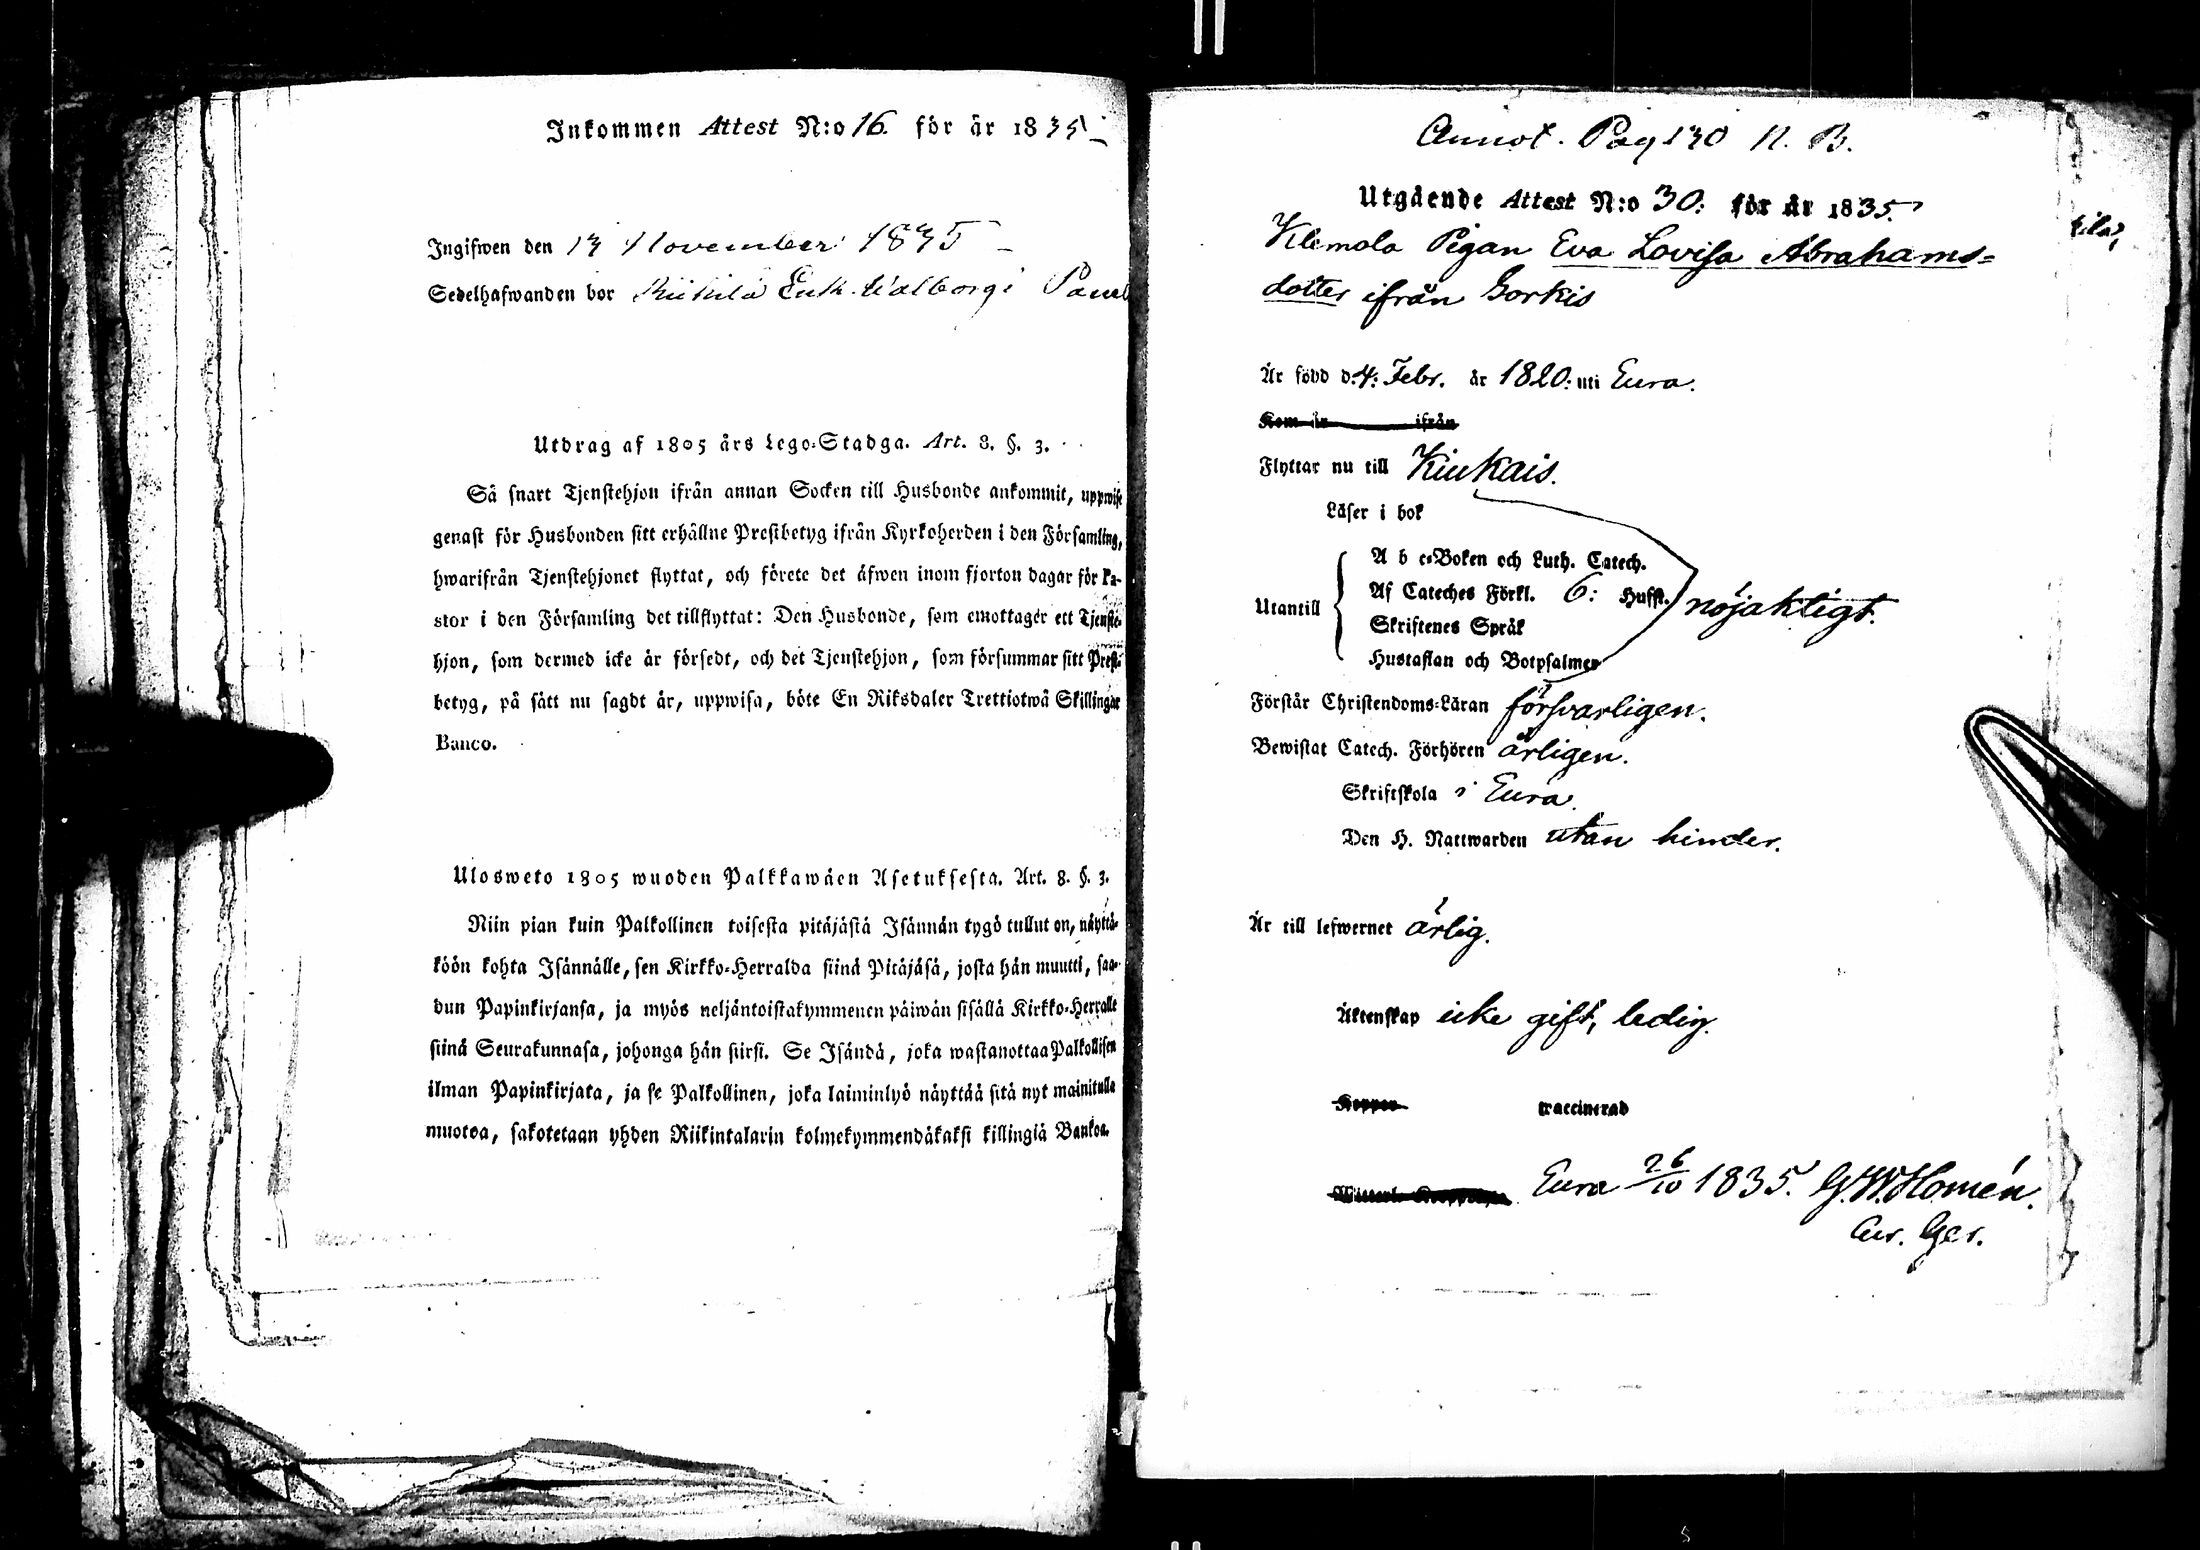 Inkommen Attest N:o 16. för år 1835
Ingifwen den 13 November 1835
Sedelhafwanden bor
Utdrag af 1805 års Lego-Stadga. Art. 8. §. 3.
Så snart Tjenstehjon ifrån annan Socken till Husbonde ankommit, uppwise
genast för Husbonden sitt erhållne Prestbetyg ifrån Kyrkoherden i den Församling,
hwarifrån Tjenstehjonet flyttat, och förete det äfwen inom fjorton dagar för Pa-
stor i den Församling det tillflyttat: Den Husbonde, som emottager ett Tjenste-
hjon, som dermed icke är försedt, och det Tjenstehjon, som försummar sitt Prest-
betyg, på sätt nu sagdt är, uppwisa, böte En Riksdaler Trettiotwå Skillingar
Banco.
Ulosweto 1805 wuoden Palkkawäen Asetuksesta. Art. 8. §. 3.
Niin pian kuin Palkollinen toisesta pitäjästä Isännän tygö tullut on, näyttä-
köön kohta Isännälle, sen Kirkko-Herralda siinä Pitäjäsä, josta hän muutti, saa-
dun Papinkirjansa, ja myös neljäntoistakymmenen päiwän sisällä Kirkko-Herralle
siinä Seurakunnasa, johonga hän siirsi. Se Isändä, joka wastanottaa Palkollisen
ilman Papinkirjata, ja se Palkollinen, joka laiminlyö näyttää sitä nyt mainitulla
muotoa, sakotetaan yhden Riikintalarin kolmekymmendäkaksi killingiä Bankoa.
Annot. Pag 130 N. B.
Utgående Attest N:o 30: för år 1835.
Klemola Pigan Eva Lovisa Abrahams-
dotter ifrån Sorkis
Är född d. 4: Febr. år 1820: uti Eura.
Kom år ifrån
Flyttar nu till Kiukais.
Läser i bok
A b c-Boken och Luth. Catech.
Utantill Af Cateches Förkl. 6: Hufst. nöjaktigt.
Skriftenes Språk
Hustaflan och Botpsalmer
Förstår Christendoms-Läran försvarligen.
Bewistat Catech. Förhören årligen.
Skriftskola i Eura.
Den H. Nattwarden utan hinder.
Är till lefwernet ärlig.
Äktenskap icke gift, ledig.
Koppor vaccinerad
Eura 26/10 1835. G.W. Homén.